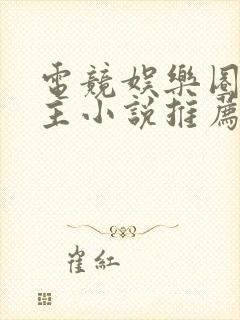 電競娛樂圈
主小說推薦
崔紅